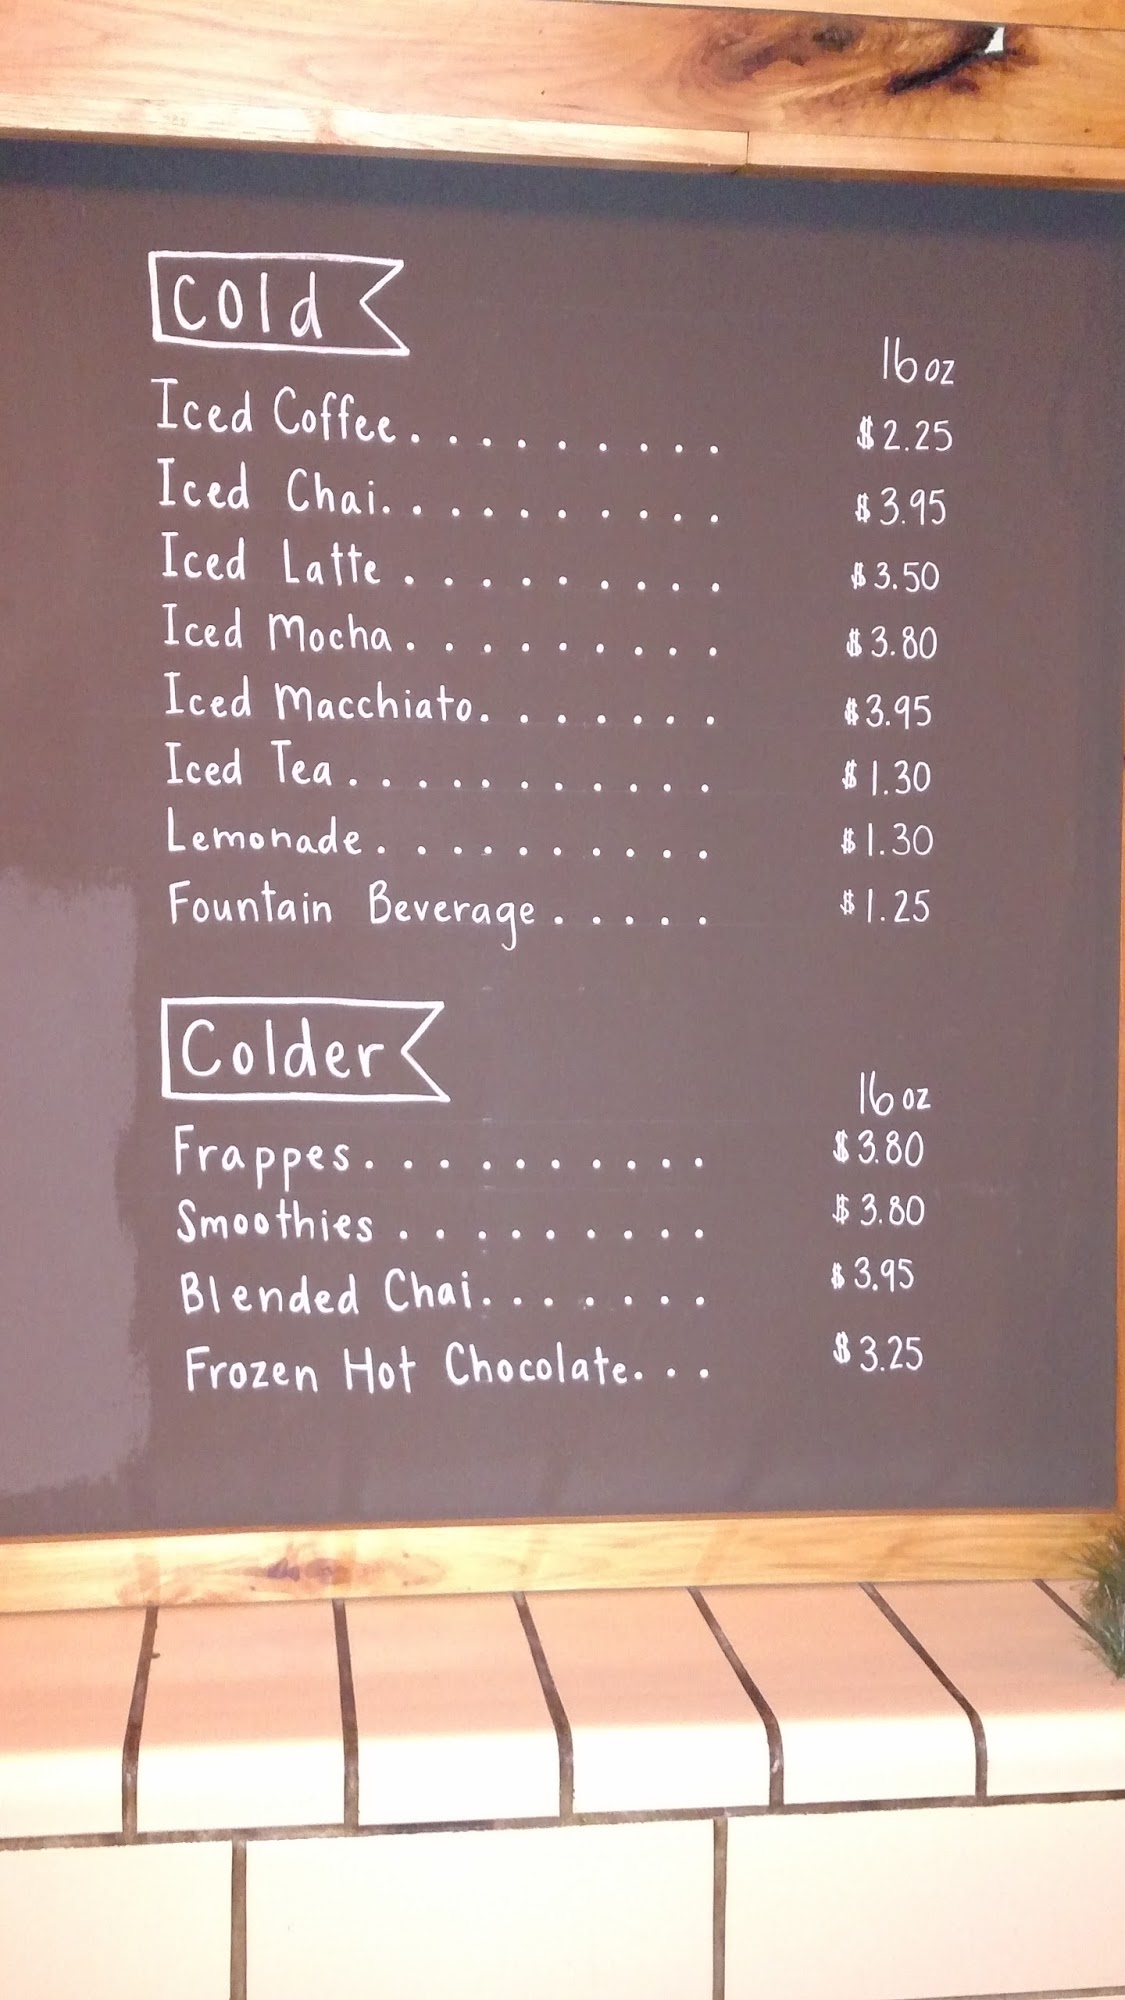 Cold
16 oz
Iced Coffee.......... $2.25
Iced Chai.......... $3.95
Iced Latte ......... $3.50
Iced Mocha......... $3.80
Iced Macchiato....... $3.95
Iced Tea .......... $1.30
Lemonade .......... $1.30
Fountain Beverage ..... $1.25
Colder
16 oz
Frappes.......... $3.80
Smoothies ......... $3.80
Blended Chai....... $3.95
Frozen Hot Chocolate... $3.25